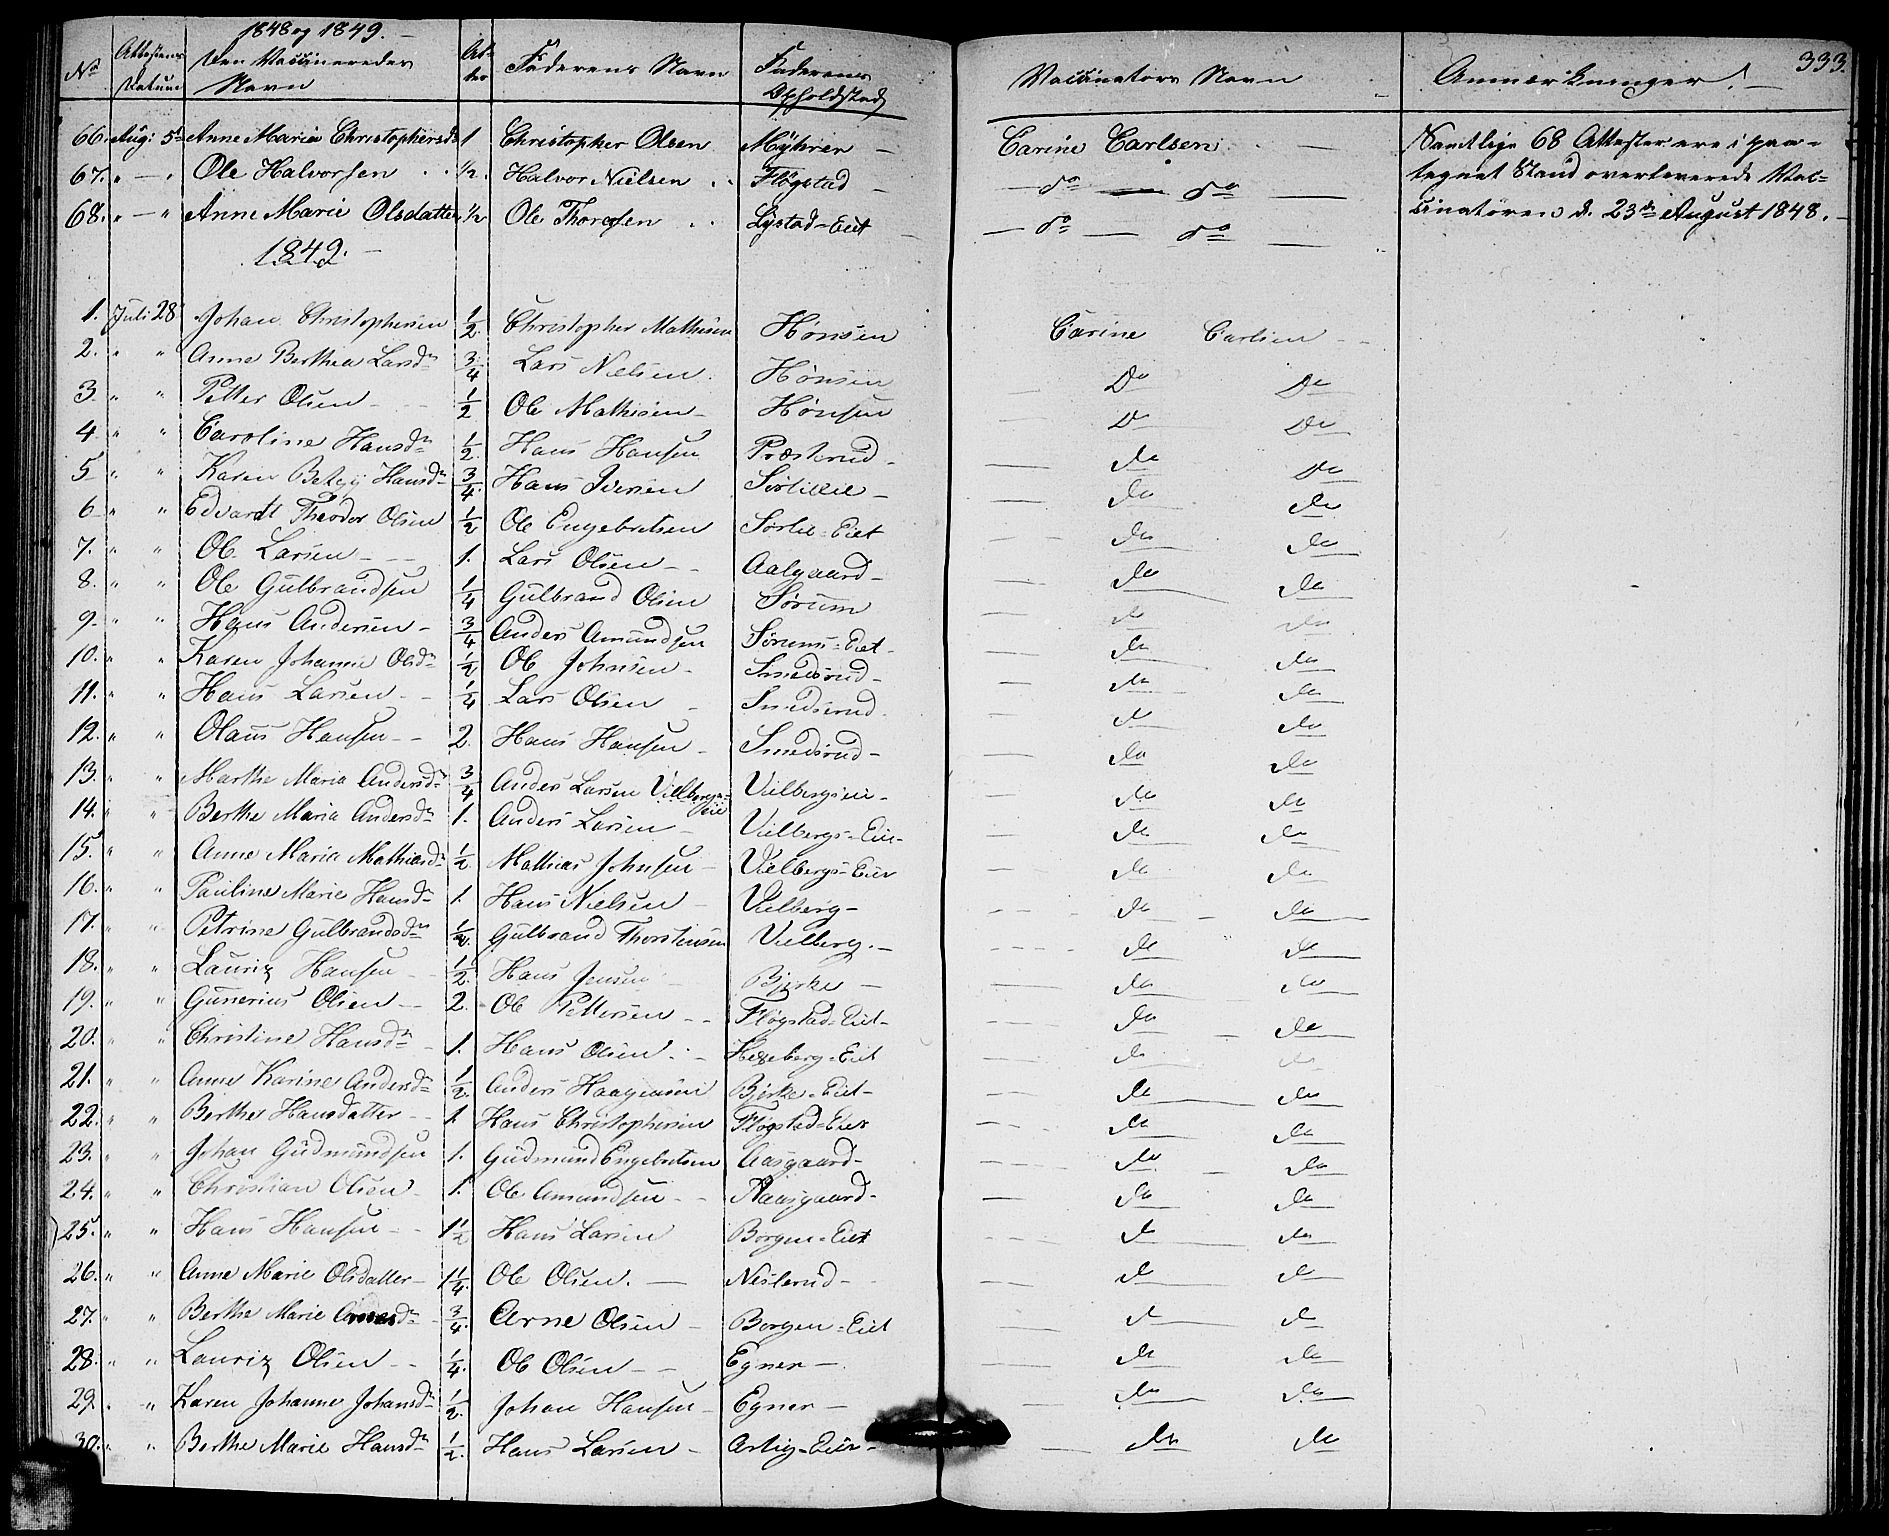 333.
1848 og 1849. –
No | Attestens Datum | Den Vaccineredes Navn | Alder | Faderens Navn | Faderens Opholdsted | Vaccinatørs Navn | Anmærkninger. –
66. Aug: 5te Anne Maria Christophersdr 1 Christopher Olsen Myhren – Carine Carlsen – Samtlige 68 Attester ere i paa-
67. " – " Ole Halvorsen 1/2. Halvor Nielsen Flögstad – do – do – tegnet Stand overleverede Vac-
68. " – " Anne Marie Olsdatter 1/2 Ole Thoresen Lystad-Eiet – do – do – cinatören d. 23de August 1848.
1849. –
1. Juli 28 Johan Christophersen 1/2 Christopher Mathisen Hønsen Carine Carlsen
2. " " Anne Berthea Larsdr 3/4 Lars Nielsen Hønsen Do Do
3 " " Petter Olsen 1/2 Ole Mathisen Hønsen Do Do
4 " " Caroline Hansdr 1/2 Hans Hansen Præsterud do Do
5 " " Karen Betzy Hansdr 3/4 Hans Iversen do do
6 " " Edvardt Theodor Olsen 1/2 Ole Engebretsen Sørlie-Eiet do do
7. " " Ole Larsen 1. Lars Olsen Aalgaard do do
8. " " Ole Gulbrandsen 1/4 Gulbrand Olsen Sørum do do
9 " " Hans Andersen 3/4 Anders Amundsen Sørums-Eiet do do
10. " " Karen Johanne Olsdr 1/2 Ole Johnsen Smedsrud do do
11. " " Hans Larsen 1/4 Lars Olsen Smedsrud do do
12. " " Olaus Hansen 2. Hans Hansen Smedsrud do do
13. " " Marthe Maria Andersdr 3/4 Anders Larsen Vilbergs-eie Vielbergseie do do
14. " " Berthe Maria Andersdr 1. Anders Larsen Vielbergs-Eie do do
15. " " Anne Maria Mathiasdr 1/2 Mathias Johnsen Vielbergs-Eier do do
16. " " Pauline Marie Hansdr 1. Hans Nielsen Vielberg do do
17. " " Petrine Gulbrandsdr 1/2. Gulbrand Thorstensen Vielberg. do do
18. " " Lauriz Hansen 1/2 Hans Jensen Bjerke do do
19. " " Gunerius Olsen 2. Ole Pettersen Fløgstad-Eiet do do
20. " " Christine Hansdr 1. Hans Olsen Hexeberg-Eiet do do
21. " " Anne Karine Andersdr 1/2 Anders Haagensen Bjerke-Eiet do do
22. " " Berthe Hansdatter 1. Hans Christophersen Fløgstad-Eier do do
23. " " Johan Gudmundsen 1. Gudmund Engebretsen Aasgaard do do
24. " " Christian Olsen 1. Ole Amundsen do do
25. " " Hans Hansen 1 1/2 Hans Larsen Borgen-Eiet do do
26. " " Anne Marie Olsdatter 1 1/4. Ole Olsen. Neslerud do do
27. " " Berthe Marie Arnesdr 3/4. Arne Olsen Borgen-Eiet do do
28. " " Lauriz Olsen 1/4. Ole Olsen Egner do do
29. " " Karen Johanne Johansdr 1/2. Johan Hansen Egner do do
30. " " Berthe Marie Hansdr 1/2. Hans Larsen do do